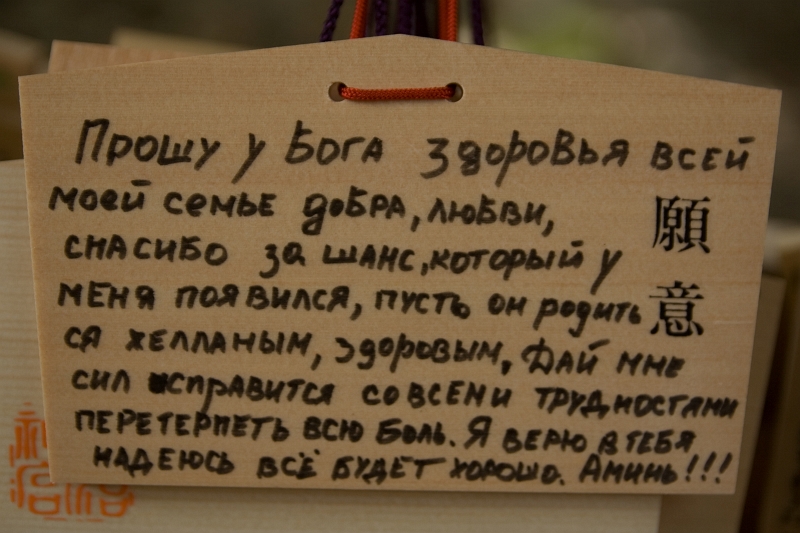 Прошу у Бога здоровья всей
моей семье добра, любви,
спасибо за шанс, который у
меня появился, пусть он родить
ся желланым, здоровым, Дай мне
сил исправится со всеми трудностями
перетерпеть всю боль. Я верю в тебя
надеюсь всё будет хорошо. Аминь!!!
願意